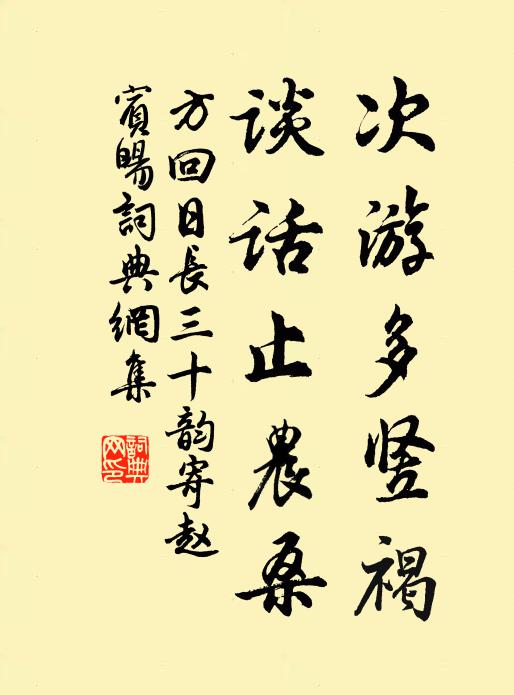 次游多竖褐
谈话止農桑
方回日長三十韵寄赵
賓暘詞典網集
詞典网印